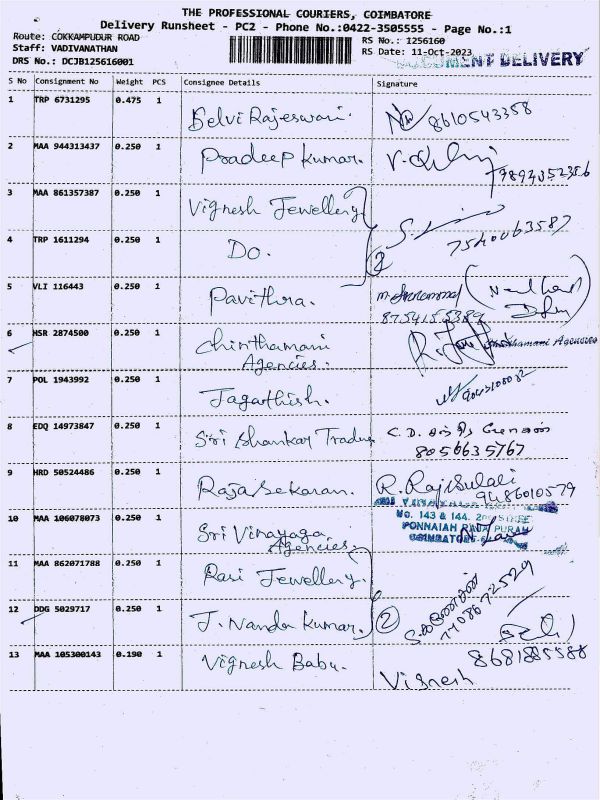 THE PROFESSIONAL COURIERS, COIMBATORE
Delivery Runsheet - PC2 - Phone No.:0422-3505555 - Page No.:1
Route: COKKAMPUDUR ROAD
RS No.: 1256160
Staff: VADIVANATHAN
RS Date: 11-Oct-2023
DOCUMENT DELIVERY
DRS No.: DCJB125616001
S No Consignment No Weight PCS Consignee Details Signature
1 TRP 6731295 0.475 1 Selvi Rajeswari. 8610543358
2 MAA 944313437 0.250 1 Pradeep Kumar.
3 MAA 861357387 0.250 1 Vignesh Jewellery
4 TRP 1611294 0.250 1 Do. 2 7540063587
5 VLI 116443 0.250 1 Pavithra.
8754155389
6 HSR 2874500 0.250 1 Chinthamani
Agencies.
Chinthamani Agencies
7 POL 1943992 0.250 1 Jagathish.
8 EDQ 14973847 0.250 1 Sri Shankar Traders C. D.
8056635767
9 HRD 50524486 0.250 1 Rajasekaran. R.
9486010579
No. 143 & 144.
10 MAA 106078073 0.250 1 Sri Vinayaga
Agencies.
PONNAIAH RAJA PURAM
COIMBATORE
11 MAA 862071788 0.250 1 Rasi Jewellery.
12 DDG 5029717 0.250 1 J. Nanda Kumar. 2
7708672529
13 MAA 105300143 0.190 1 Vignesh Babu. 8681885588
Vignesh